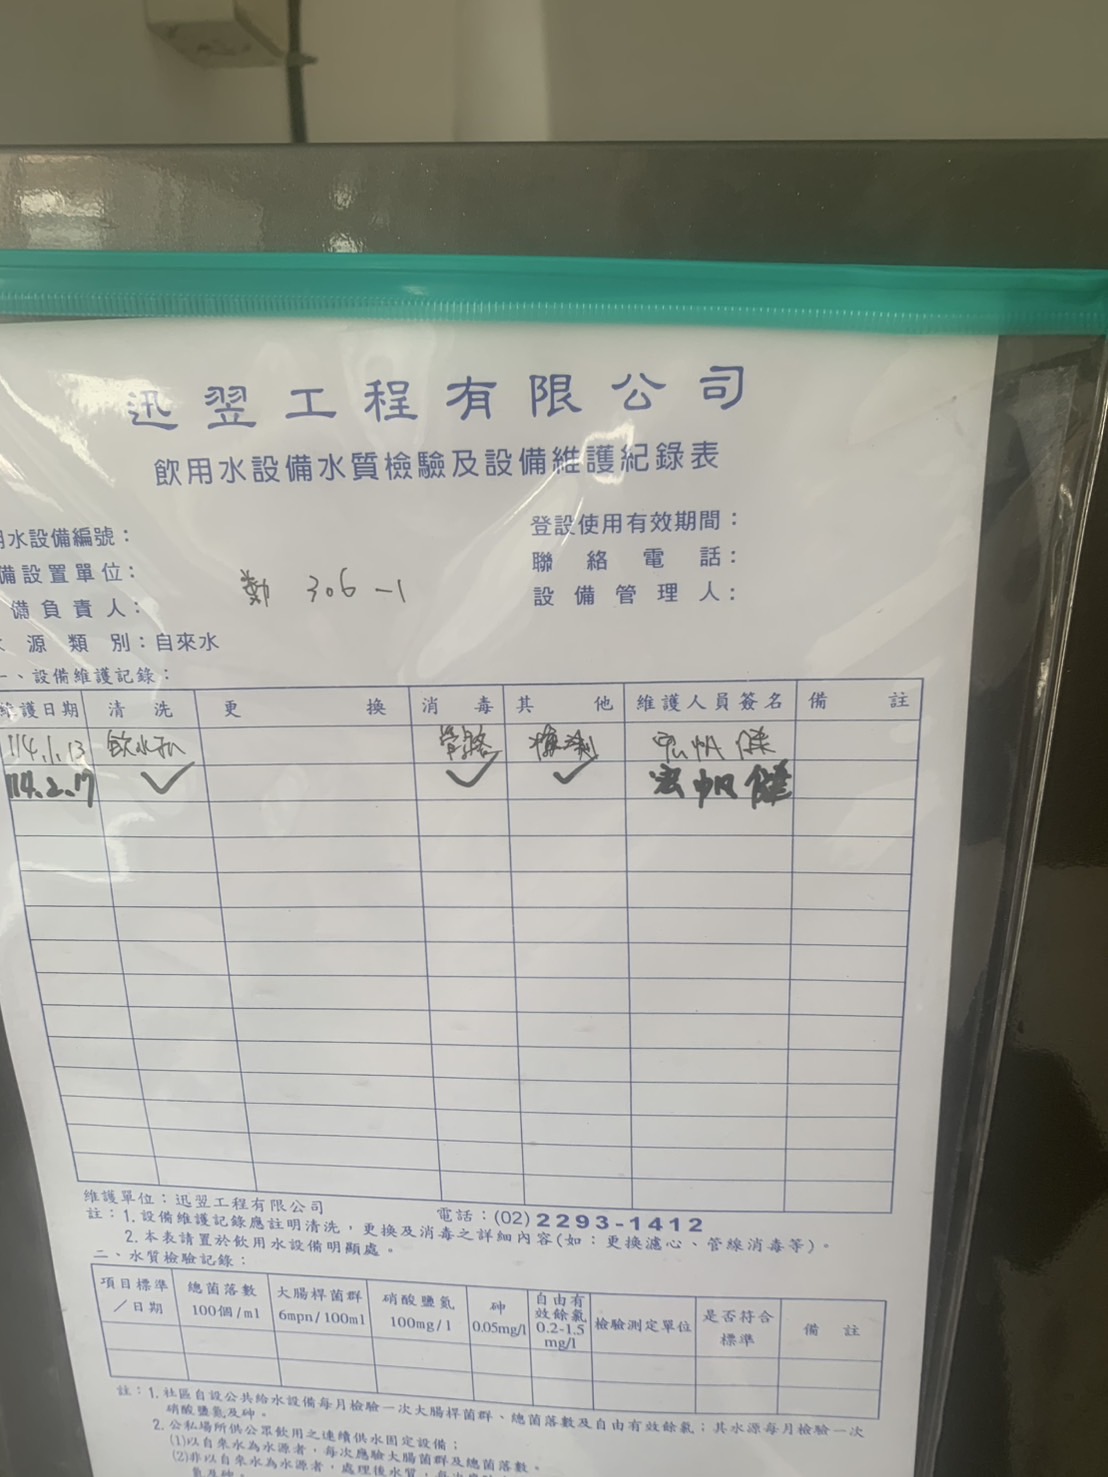 迅翌工程有限公司
飲用水設備水質檢驗及設備維護紀錄表
用水設備編號：
備設置單位：
備負責人：
鄭 306-1
源類別：自來水
登設使用有效期間：
聯絡電話：
設備管理人：
一、設備維護記錄：
維護日期 清洗 更換 消毒 其他 維護人員簽名 備註
114.1.13 飲水机 管路
114.2.17 ✓ ✓ ✓
維護單位：迅翌工程有限公司 電話：(02)2293-1412
註：1.設備維護記錄應註明清洗，更換及消毒之詳細內容(如：更換濾心、管線消毒等)。
2.本表請置於飲用水設備明顯處。
二、水質檢驗記錄：
項目標準／日期 總菌落數 100個/ml 大腸桿菌群 6mpn/100ml 硝酸鹽氮 100mg/l 砷 0.05mg/l 自由有效餘氯 0.2-1.5 mg/l 檢驗測定單位 是否符合標準 備註
註：1.社區自設公共給水設備每月檢驗一次大腸桿菌群、總菌落數及自由有效餘氯；其水源每月檢驗一次
硝酸鹽氮及砷。
2.公私場所供公眾飲用之連續供水固定設備；
(1)以自來水為水源者，每次應驗大腸菌群及總菌落數。
(2)非以自來水為水源者，處理後水質，每次應
氮及砷。